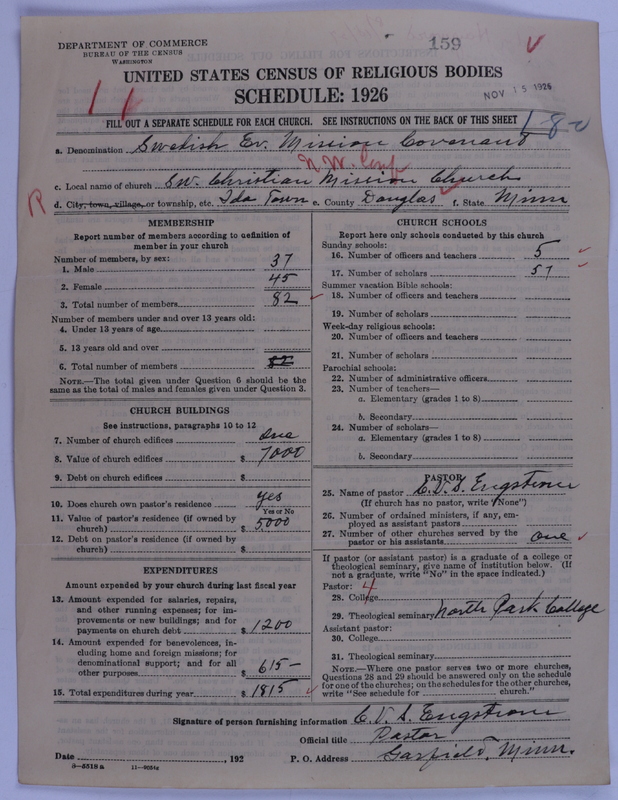 DEPARTMENT OF COMMERCE
BUREAU OF THE CENSUS
WASHINGTON
159
UNITED STATES CENSUS OF RELIGIOUS BODIES
SCHEDULE: 1926
NOV 15 1926
FILL OUT A SEPARATE SCHEDULE FOR EACH CHURCH. SEE INSTRUCTIONS ON THE BACK OF THIS SHEET
1-8-0
a. Denomination Swedish Ev. Mission Covenant
N.W. Conf
c. Local name of church Sw. Christian Mission Church
d. City, town, village, or township, etc. Ida Town e. County Douglas f. State Minn
MEMBERSHIP
Report number of members according to definition of
member in your church
Number of members, by sex:
1. Male 37
2. Female 45
3. Total number of members 82
Number of members under and over 13 years old:
4. Under 13 years of age
5. 13 years old and over
6. Total number of members 82
NOTE.—The total given under Question 6 should be the
same as the total of males and females given under Question 3.
CHURCH BUILDINGS
See instructions, paragraphs 10 to 12
7. Number of church edifices One
8. Value of church edifices $ 7000
9. Debt on church edifices $
10. Does church own pastor's residence yes
Yes or No
11. Value of pastor's residence (if owned by
church) $ 5000
12. Debt on pastor's residence (if owned by
church) $
EXPENDITURES
Amount expended by your church during last fiscal year
13. Amount expended for salaries, repairs,
and other running expenses; for im-
provements or new buildings; and for
payments on church debt $ 1200
14. Amount expended for benevolences, in-
cluding home and foreign missions; for
denominational support; and for all
other purposes $ 615-
15. Total expenditures during year $ 1815
CHURCH SCHOOLS
Report here only schools conducted by this church
Sunday schools:
16. Number of officers and teachers 5
17. Number of scholars 57
Summer vacation Bible schools:
18. Number of officers and teachers
19. Number of scholars
Week-day religious schools:
20. Number of officers and teachers
21. Number of scholars
Parochial schools:
22. Number of administrative officers
23. Number of teachers—
a. Elementary (grades 1 to 8)
b. Secondary
24. Number of scholars—
a. Elementary (grades 1 to 8)
b. Secondary
PASTOR
25. Name of pastor C.V.S. Engstrom
(If church has no pastor, write "None")
26. Number of ordained ministers, if any, em-
ployed as assistant pastors
27. Number of other churches served by the
pastor or his assistants one
If pastor (or assistant pastor) is a graduate of a college or
theological seminary, give name of institution below. (If
not a graduate, write "No" in the space indicated.)
Pastor: 4
28. College
29. Theological seminary North Park College
Assistant pastor:
30. College
31. Theological seminary
NOTE.—Where one pastor serves two or more churches,
Questions 28 and 29 should be answered only on the schedule
for one of the churches; on the schedules for the other churches,
write "See schedule for church."
Signature of person furnishing information C.V.S. Engstrom
Official title Pastor
Date , 192 P. O. Address Garfield, Minn.
9—5518 a 11—9054g